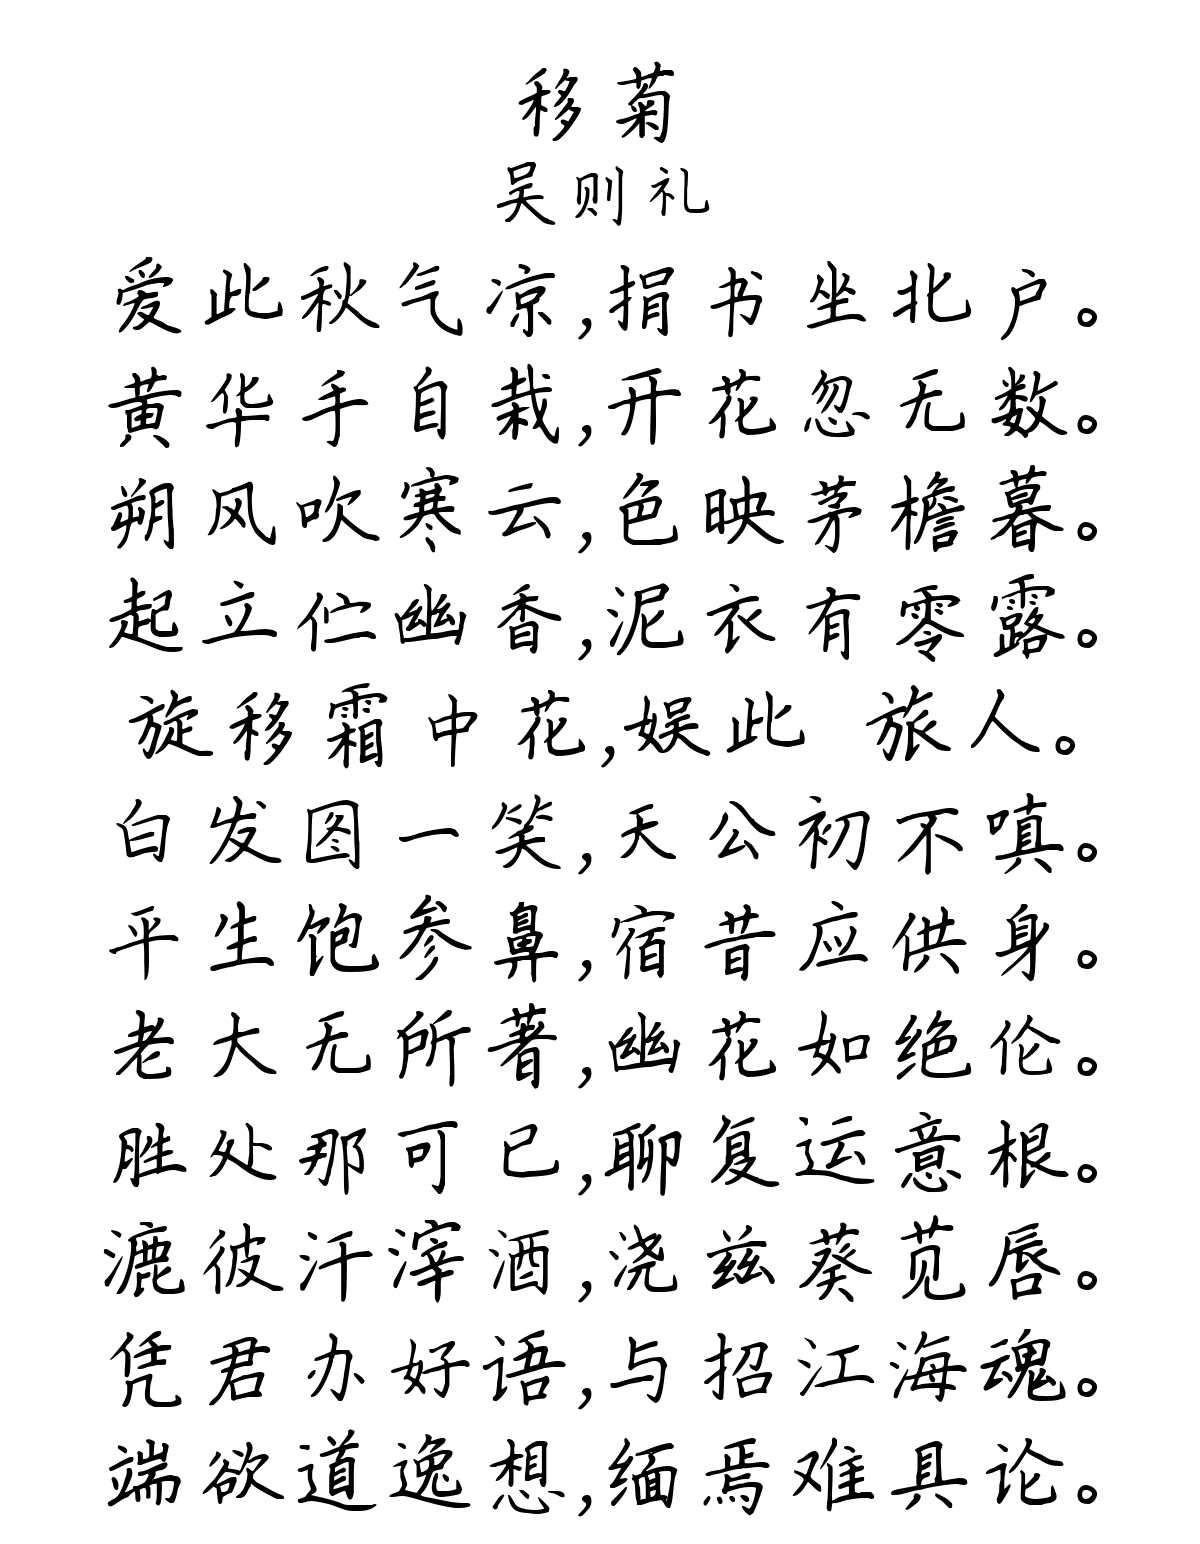 移菊
吴则礼
爱此秋气凉,捐书坐北户。
黄华手自栽,开花忽无数。
朔风吹寒云,色映茅檐暮。
起立伫幽香,泥衣有零露。
旋移霜中花,娱此 旅人。
白发图一笑,天公初不嗔。
平生饱参鼻,宿昔应供身。
老大无所著,幽花如绝伦。
胜处那可已,聊复运意根。
漉彼汗滓酒,浇兹葵苋唇。
凭君办好语,与招江海魂。
端欲道逸想,缅焉难具论。